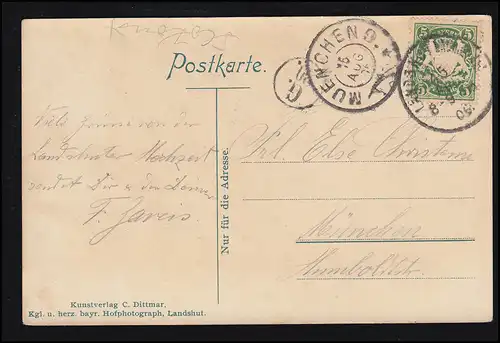 Postkarte.
MUENCHEN 9.
16
AUG
5 5
Viele Grüsse von der
Landshuter Hochzeit
sendet Dir u. den Deinen
F. Gareis.
Nur für die Adresse.
Frl. Else
München
Humboldtstr.
Kunstverlag C. Dittmar,
Kgl. u. herz. bayr. Hofphotograph, Landshut.